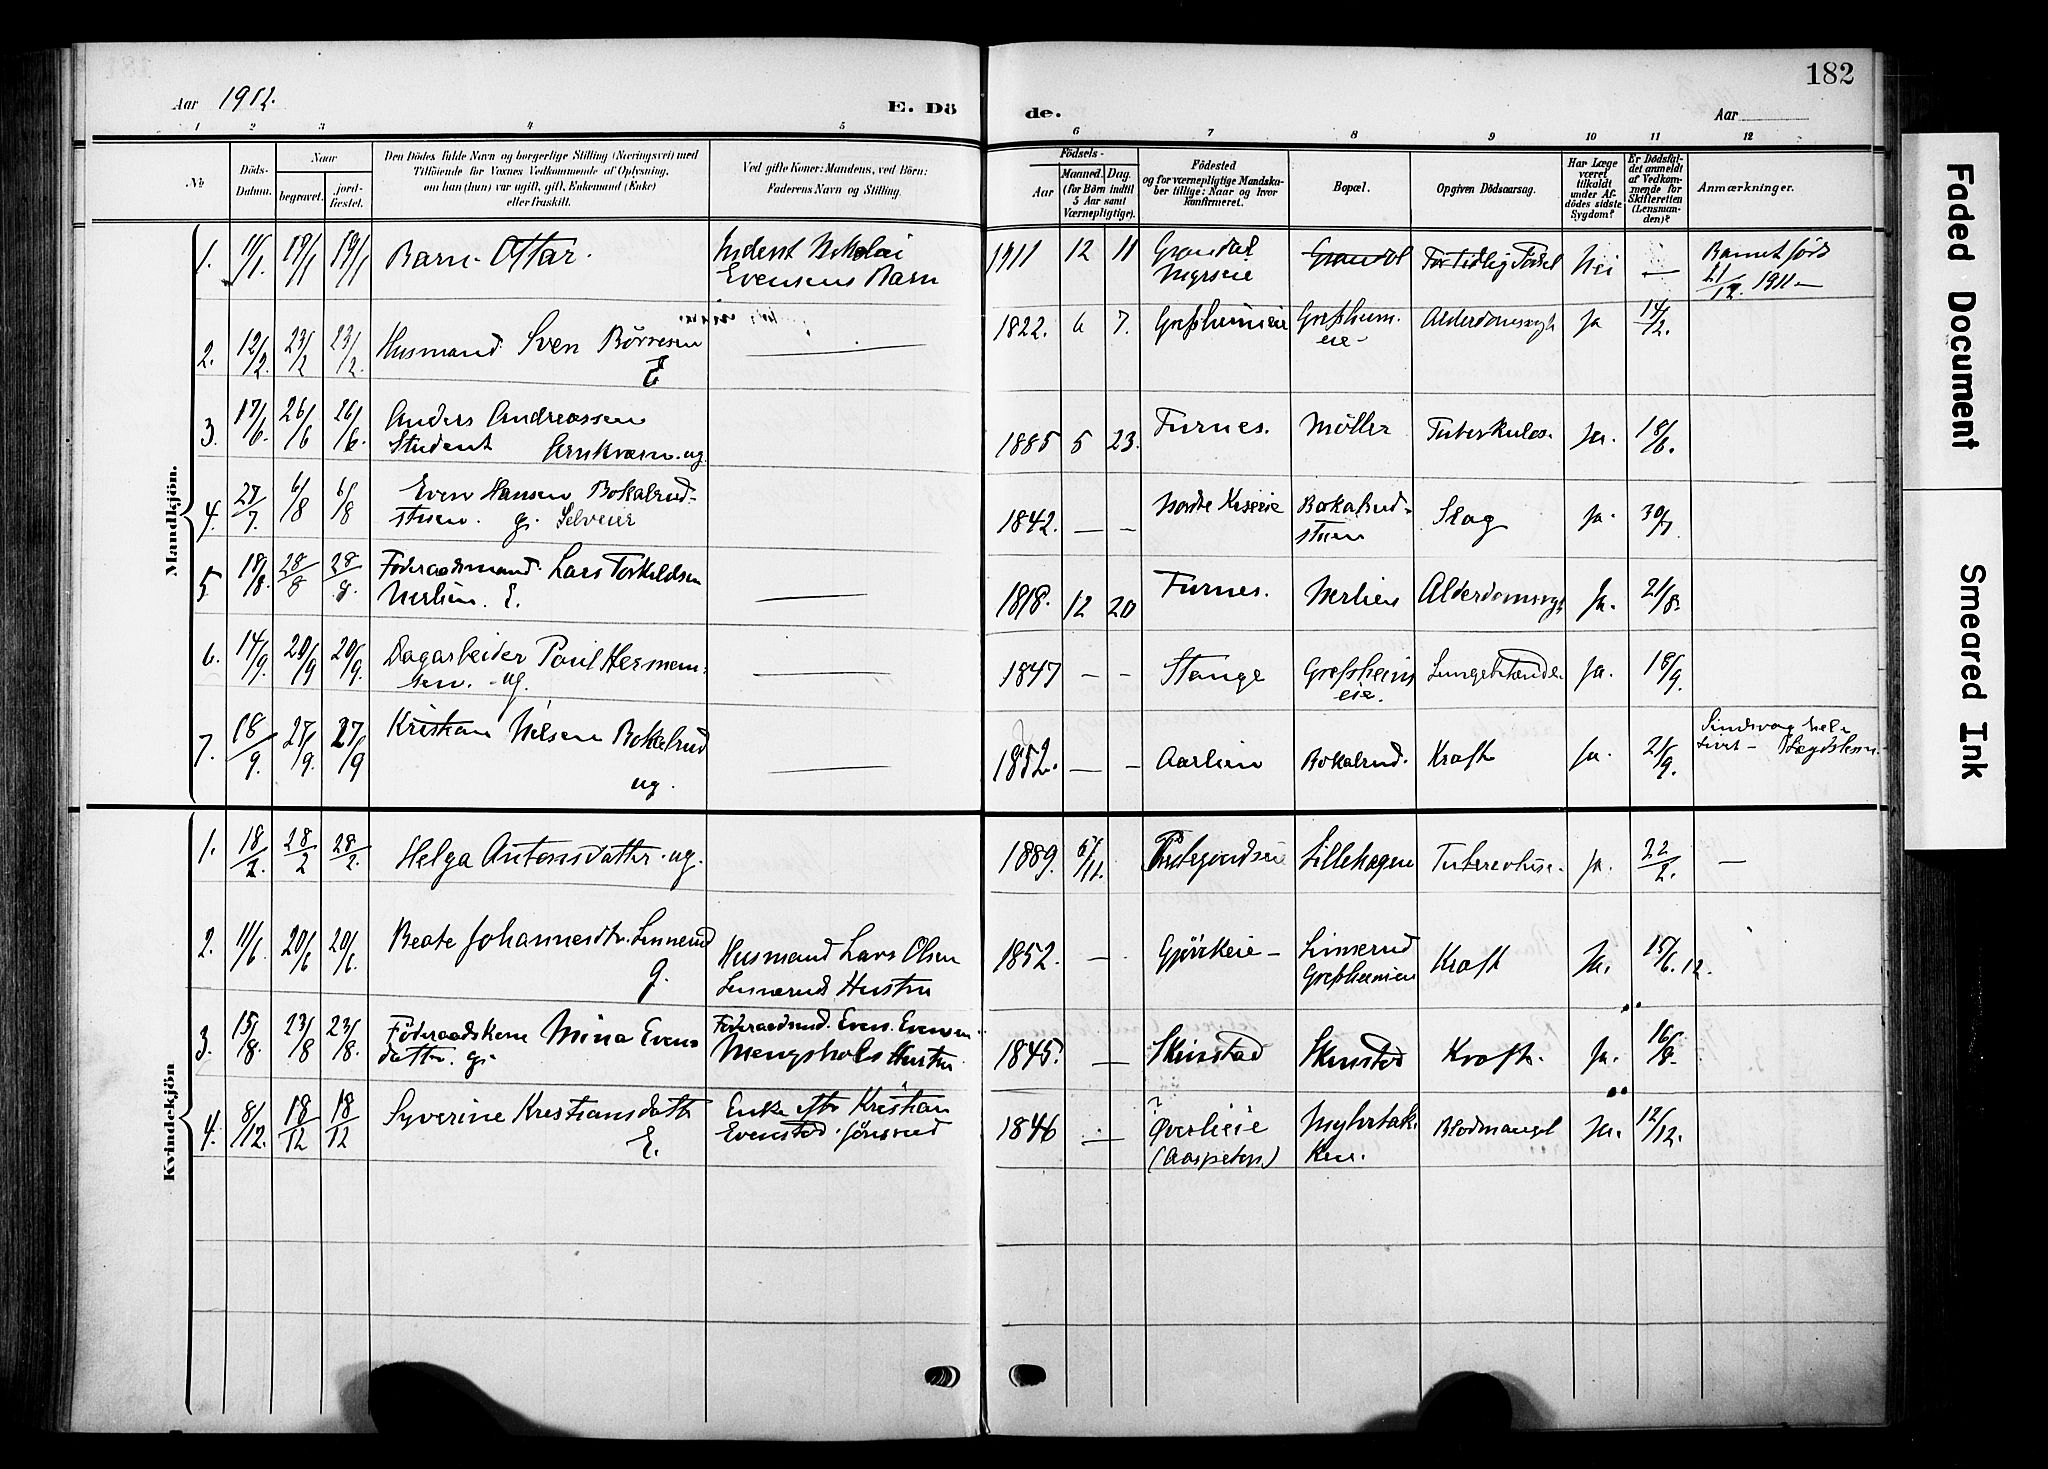 182
Aar 1912.
E. Dö
de.
Aar
1 2 3 4 5 6 7 8 9 10 11 12
No
Döds-
Datum.
Naar
begravet.
jord-
fæstet.
Den Dödes fulde Navn og borgerlige Stilling (Næringsvei) med
Tilföiende for Voxnes Vedkommende af Oplysning,
om han (hun) var ugift, gift, Enkemand (Enke)
eller fraskilt.
Ved gifte Koner: Mandens, ved Börn:
Faderens Navn og Stilling.
Födsels-
Aar
Maaned. Dag.
(for Börn indtil
5 Aar samt
Værnepligtige).
Födested
og for værnepligtige Mandska-
ber tillige: Naar og hvor
konfirmeret.
Bopæl.
Opgiven Dödsaarsag.
Har Læge
været
tilkaldt
under Af-
dödes sidste
Sygdom?
Er Dödsfal-
det anmeldt
af Vedkom-
mende for
Skifteretten
(Lensman-
den)?
Anmærkninger.
Mandkjön.
1. 11/1. 19/1 19/1 Barn Ottar. Inderst Nikolai
Evensens Barn
1911 12 11 Grandal
Myrseie Grandal For tidlig Födsel Nei —
Barnet född
21/12. 1911—
2. 12/2. 23/2 23/2. Husmand Sven Börresen
E
1822. 6 7. Grefsheimeie Grefsheim-
eie- Alderdomssvgh Ja 14/2.
3. 17/6. 26/6 26/6. Anders Andreassen
Student Jernkværn. ug.
1885 5 23. Furnes. Möller Tuberkulos. Ja. 18/6.
4. 27/7. 6/8 6/8 Even Hansen Bokalrud-
stuen. g. Selveier
1842. — — Nordre Kiseeie Bokalrud-
stuen Slag Ja. 30/7
5. 18/8. 28/8 28/8. Föderaadsmand Lars Torkildsen
Nerlien. E.
1818. 12 20 Furnes. Nerlien Alderdomssvgh Ja. 21/8.
6. 14/9. 20/9 20/9. Dagarbeider Poul Herman-
sen. ug.
1847 — — Stange Grefsheims
eie. Lungebetænde. Ja. 18/9.
7. 18/9. 27/9. 27/9 Kristian Nilsen Bokalrud
ug.
1852. — — Aarlien Bokalrud. Kræft Ja. 21/9.
Sindsvag hele
Livet — Lægdslem.
Kvindekjön
1. 18/2. 28/2 28/2. Helga Antonsdatter. ug.
1889. 5/11. Lillehagen Tuberculose. Ja. 22/2. —
2. 11/6. 20/6 20/6. Beate Johannesdtr. Linnerud
g. Husmand Lars Olsen
Linnerud Hustru
1852. — Gjövikeie — Linnerud
Grefsheimeie Kræft Ja. 15/6. 12.
3. 15/8. 23/8 23/8. Föderaadskone Mina Evens
datter. g. Föderaadsmd. Even Evensen
Mengshols Hustru
1845. — Skinstad Skinstad Kræft. Ja. 16/8.
4. 8/12. 18/12 18/12 Syverine Kristiansdatt
E. Enke efter Kristian
Evenstad.
1846 — ?
Överlieie
(Aaspetop.) Myhrbak
ken. Blodmangel Ja. 12/12.
Faded Document
Smeared Ink